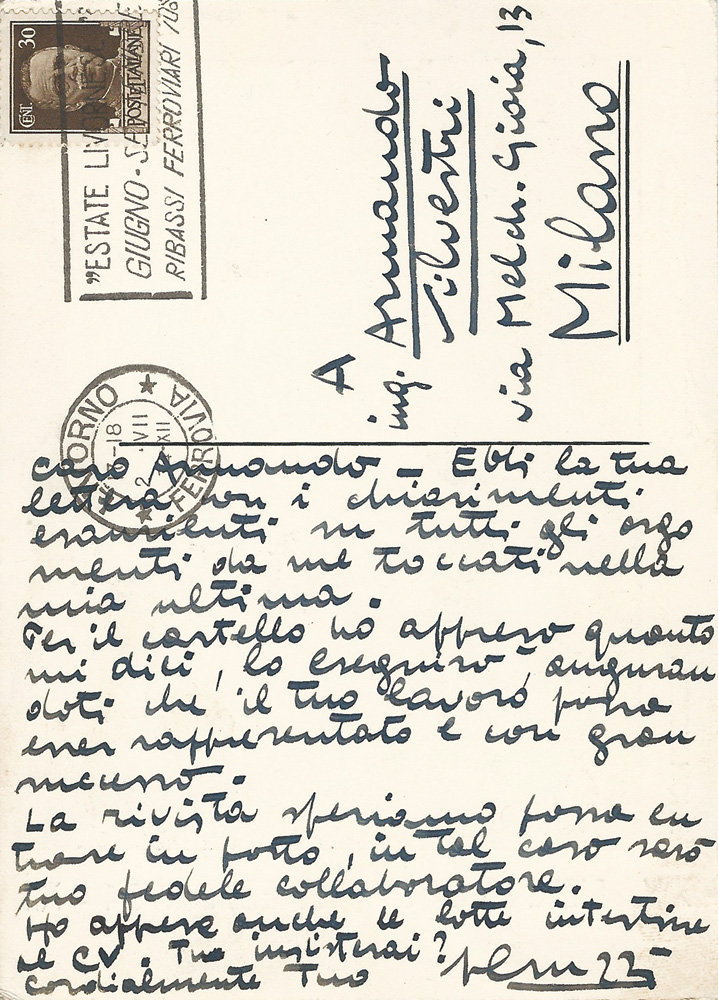 CENT. 30
POSTE ITALIANE
"ESTATE LIVORNESE"
GIUGNO-
RIBASSI FERROVIARI
LIVORNO
FERROVIA
-18
VII
XII
A
ing. Armando
Silvestri
via Melch. Gioia, 13
Milano
caro Armando - Ebbi la tua
lettera con i chiarimenti
esaurienti su tutti gli argo
menti da me toccati nella
mia ultima.
Per il cartello ho appreso quanto
mi dici, lo eseguirò, auguran
doti che il tuo lavoro possa
esser rappresentato e con gran
successo.
La rivista speriamo possa en
trare in porto, in tal caso sarò
tuo fedele collaboratore.
Ho appreso anche le lotte intestine
al CV. Tu insisterai?
Cordialmente Tuo